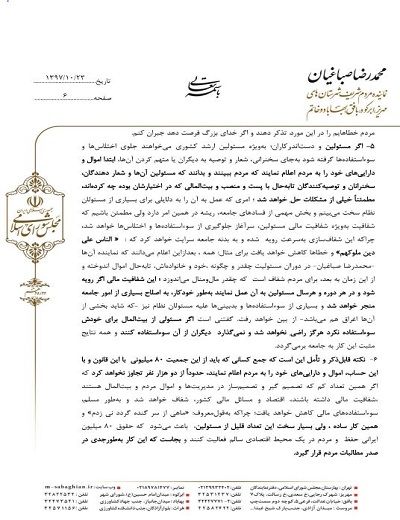 محمدرضا صباغیان
نماینده مردم شریف شهرستان‌های
مهریز، ابرکوه، بافق، بهاباد و خاتم
باسمه تعالی
تاریخ: ۱۳۹۷/۱۰/۲۳
صفحه: ۶
مجلس شورای اسلامی
مردم خطاهایم را در این مورد، تذکر دهند و اگر خدای بزرگ فرصت دهد جبران کنم.
۵- اگر مسئولین و دست‌اندرکاران؛ به‌ویژه مسئولین ارشد کشوری می‌خواهند جلوی اختلاس‌ها و
سوءاستفاده‌ها گرفته شود به‌جای سخنرانی، شعار و توصیه به دیگران یا متهم کردن آن‌ها، ابتدا اموال و
دارایی‌های خود را به مردم اعلام نمایند که مردم ببینند و بدانند که مسئولین آن‌ها و شعار دهندگان،
سخنرانان و توصیه‌کنندگان تابه‌حال با پست و منصب و بیت‌المالی که در اختیارشان بوده چه کرده‌اند،
مطمئناً خیلی از مشکلات حل خواهد شد؛ امری که عمل به آن را به دلایلی برای بسیاری از مسئولان
نظام سخت می‌بینم و بخش مهمی از فسادهای جامعه، ریشه در همین امر دارد ولی مطمئن باشیم که
شفافیت به‌ویژه شفافیت مالی مسئولین، سرآغاز جلوگیری از سوءاستفاده‌ها و اختلاس‌ها خواهد شد،
چراکه این شفاف‌سازی به‌سرعت رویه شده و به بدنه جامعه سرایت خواهد کرد که : « الناس علی
دین ملوکهم» و خطاها کاهش خواهد یافت برای مثال: همه ، بعدازاین اعلام می‌دانند که نماینده آن‌ها
-محمدرضا صباغیان- در دوران مسئولیت چقدر و چگونه ،خود و خانواده‌اش، تابه‌حال اموال اندوخته و
از این زمان به بعد، برای مردم شفاف است که چقدر مال‌ومنال می‌اندوزد ؛ این شفافیت مالی اگر رویه
شود و در هر دوره و هرسال مسئولین به آن عمل نمایند به‌طور خودکار، به اصلاح بسیاری از امور جامعه
منجر خواهد شد و بسیاری از سوءاستفاده‌ها و بدبینی‌ها علیه مسئولان نظام نیز -که شاید بخشی از
آن‌ها اغراق هم می‌باشد- از بین خواهد رفت. گفتنی است اگر مسئولی از بیت‌المال برای خودش
سوءاستفاده نکرد هرگز راضی نخواهد شد و نمی‌گذارد دیگران از آن سوءاستفاده کنند و همه نتایج
مثبت این کار به جامعه برمی‌گردد.
۶- نکته قابل‌ذکر و تأمل این است که جمع کسانی که باید از این جمعیت ۸۰ میلیونی با این قانون و با
این حساب، اموال و دارایی‌های خود را به مردم اعلام نمایند، حدوداً از دو هزار نفر تجاوز نخواهد کرد که
اگر همین تعداد کم که تصمیم گیر و تصمیم‌ساز در مدیریت‌ها و اموال مردم و بیت‌المال هستند
،شفافیت مالی داشته باشند، اقتصاد و مسائل مالی کشور، شفاف خواهد شد و به‌طور مسلم،
سوءاستفاده‌های مالی کاهش خواهد یافت؛ چراکه به‌قول‌معروف: «ماهی از سر گنده گردد نی زدم» و
همین کار ساده ، ولی بسیار سخت این تعداد قلیل از مسئولین، باعث می‌شود که حقوق ۸۰ میلیون
ایرانی حفظ و مردم در یک محیط اقتصادی سالم فعالیت کنند و بجاست که این کار به‌طورجدی در
صدر مطالبات مردم قرار گیرد.